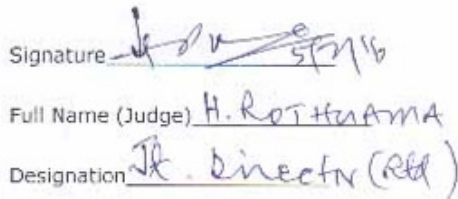 Signature 5/7/16
Full Name (Judge) H. ROTHUAMA
Designation Jt. Director (Rtd)